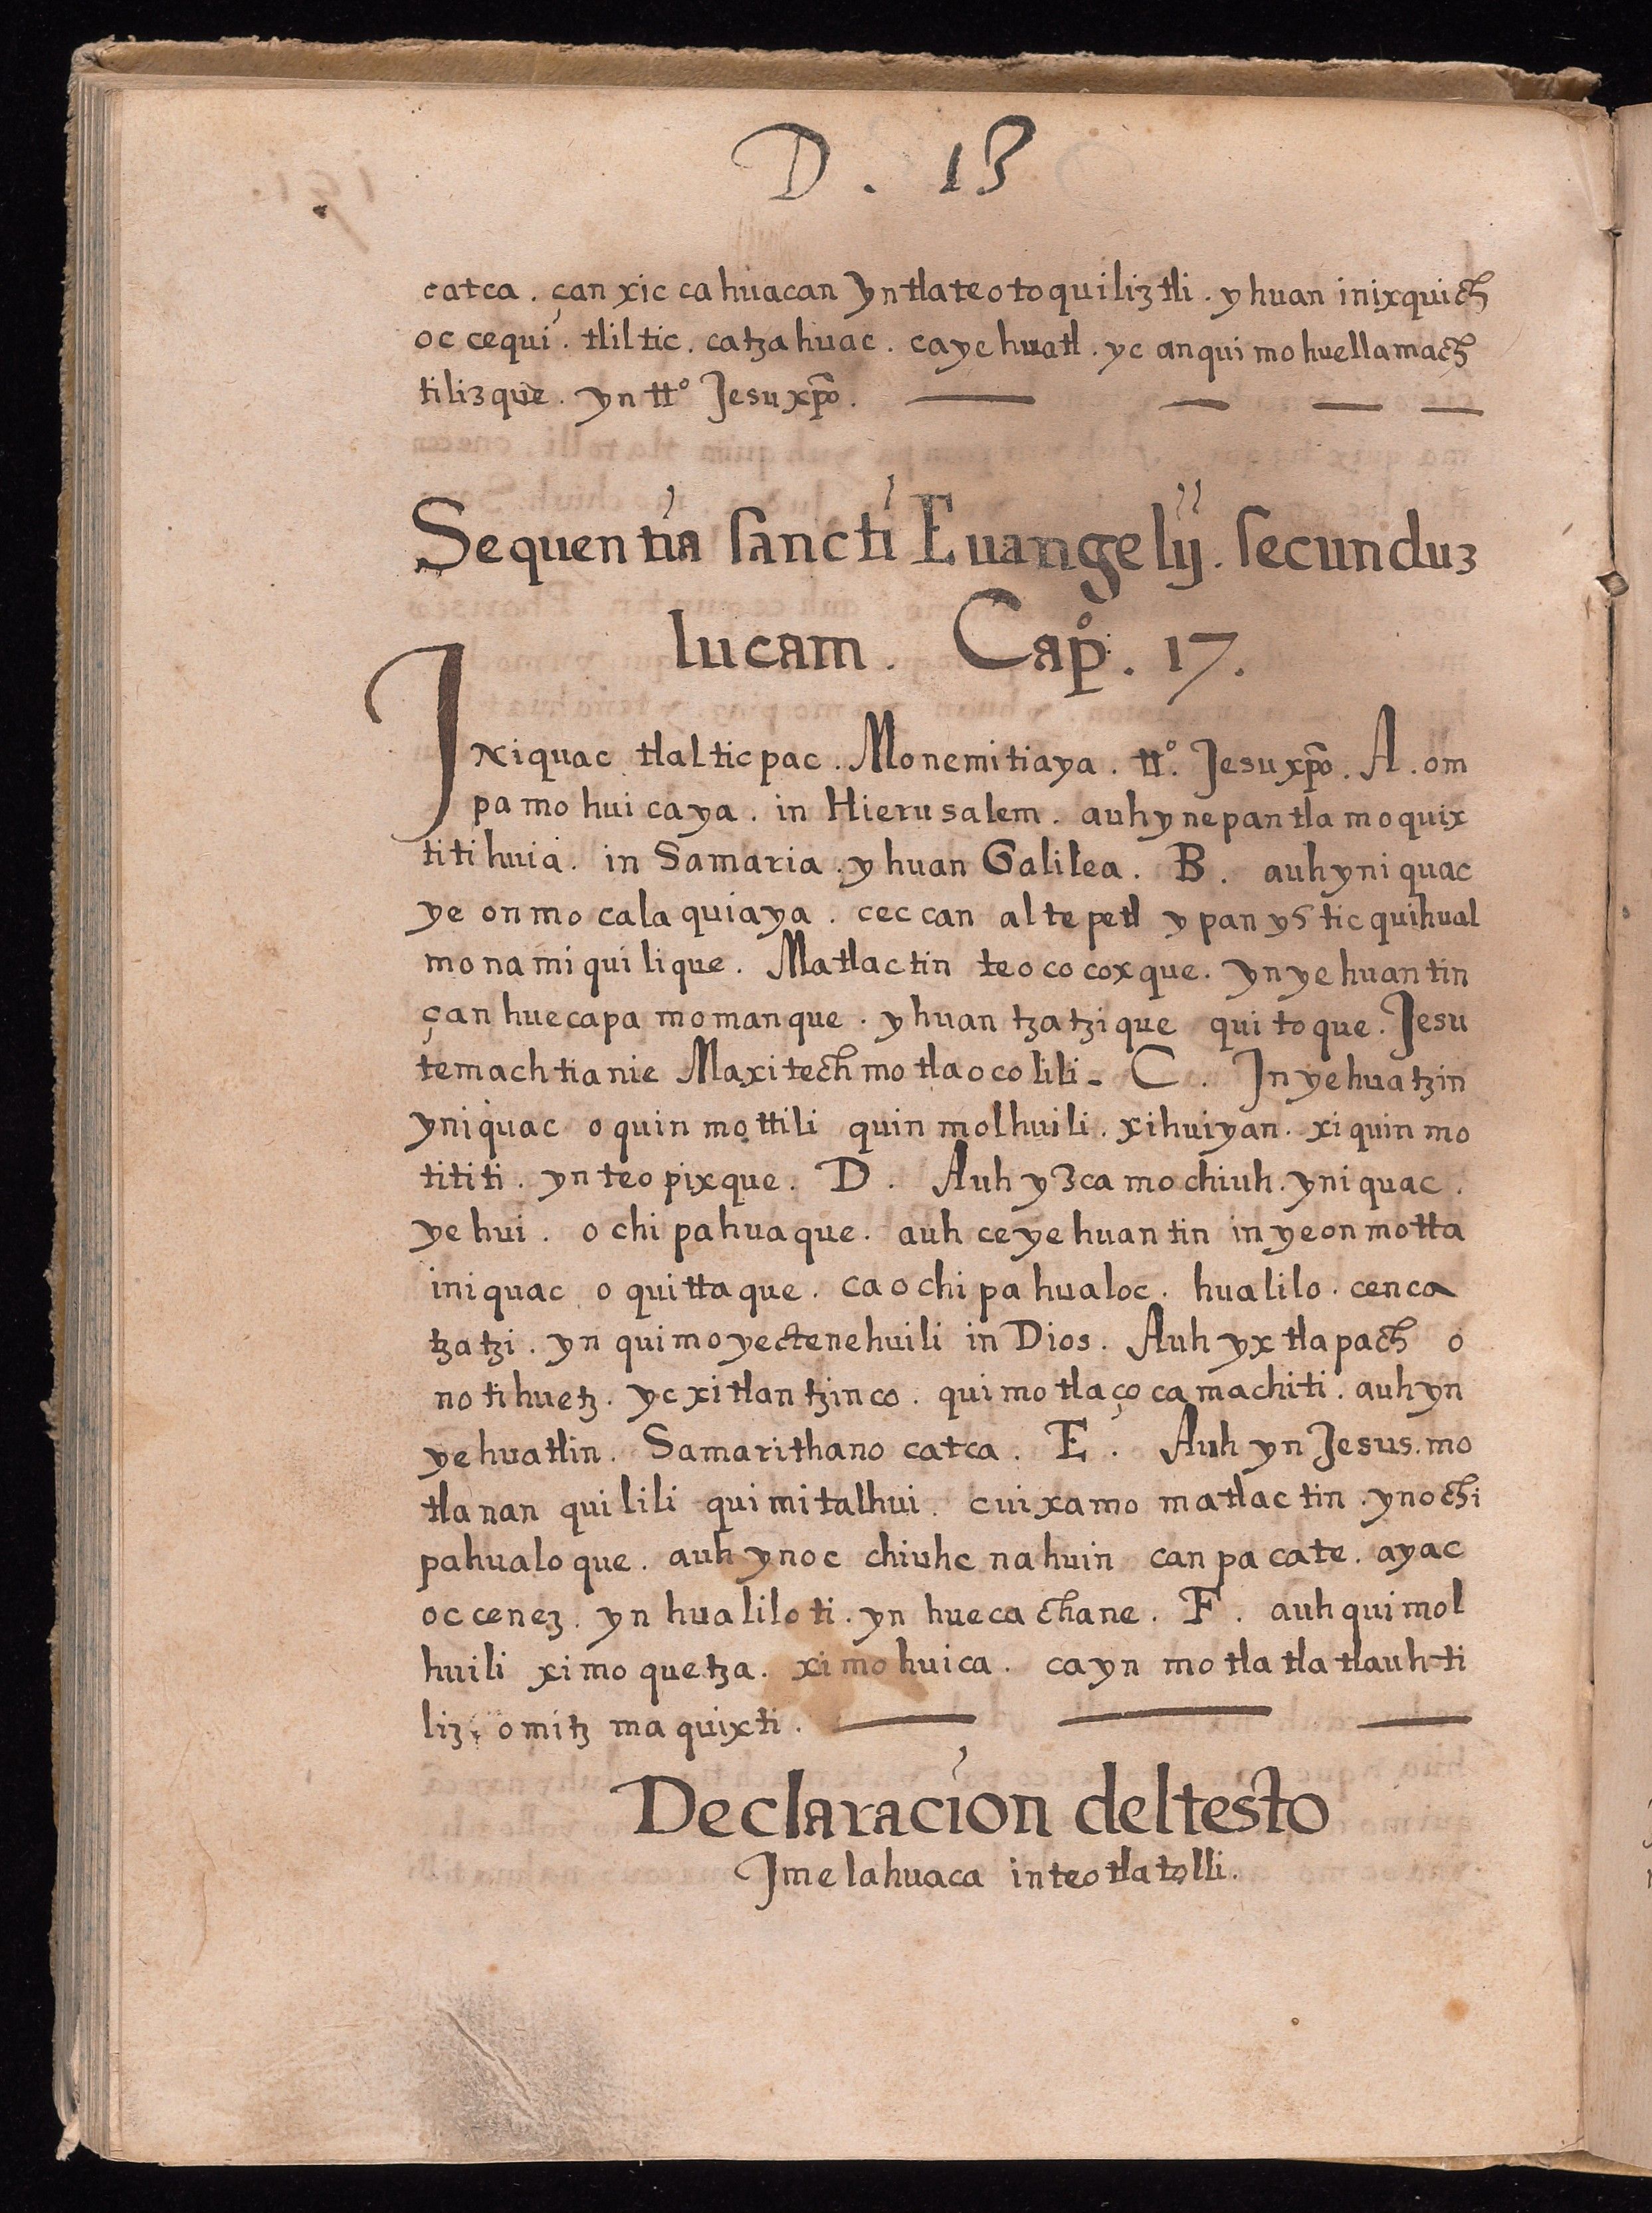 D. 13
catca. çan xic cahuacan yntlateotoquiliztli. yhuan inixquich
occequi. tliltic. catzahuac. cayehuatl. yc anquimohuellamach
tilizque. yn tto Jesu xpo.
Sequentia sancti Euangelij. secunduz
lucam. Capo. 17.
Iniquac tlalticpac. Monemitiaya. tto. Jesu xpo. A. om
pa mohuicaya. in Hierusalem. auh ynepantla moquix
titihuia. in Samaria. yhuan Galilea. B. auh yniquac
ye onmocalaquiaya. ceccan altepetl ypan ys ticquihual
monamiquilique. Matlactin teococoxque. ynyehuantin
çan huecapa momanque. yhuan tzatzique quitoque. Jesu
temachtianie Maxitechmotlaocolili. C. In yehuatzin
yniquac oquinmottili quinmolhuili. xihuiyan. xiquinmo
tititi. yn teopixque. D. Auh yzca mochiuh. yniquac.
yehui. ochipahuaque. auh ceyehuantin in yeonmotta
iniquac oquittaque. caochipahualoc. hualilo. cenca
tzatzi. yn quimoyectenehuili in Dios. Auh yxtlapach o
notihuetz. ycxitlantzinco. quimotlaçocamachiti. auh yn
yehuatlin. Samarithano catca. E. Auh yn Jesus. mo
tlananquilili quimitalhui. cuixamo matlactin. ynochi
pahualoque. auh ynoc chiuhcnahuin canpa cate. ayac
occenez. yn hualiloti. yn hueca chane. F. auh quimol
huili ximoquetza. ximohuica. cayn motlatlatlauhti
liz. omitz maquixti.
Declaracion deltesto
Imelahuaca inteotlatolli.